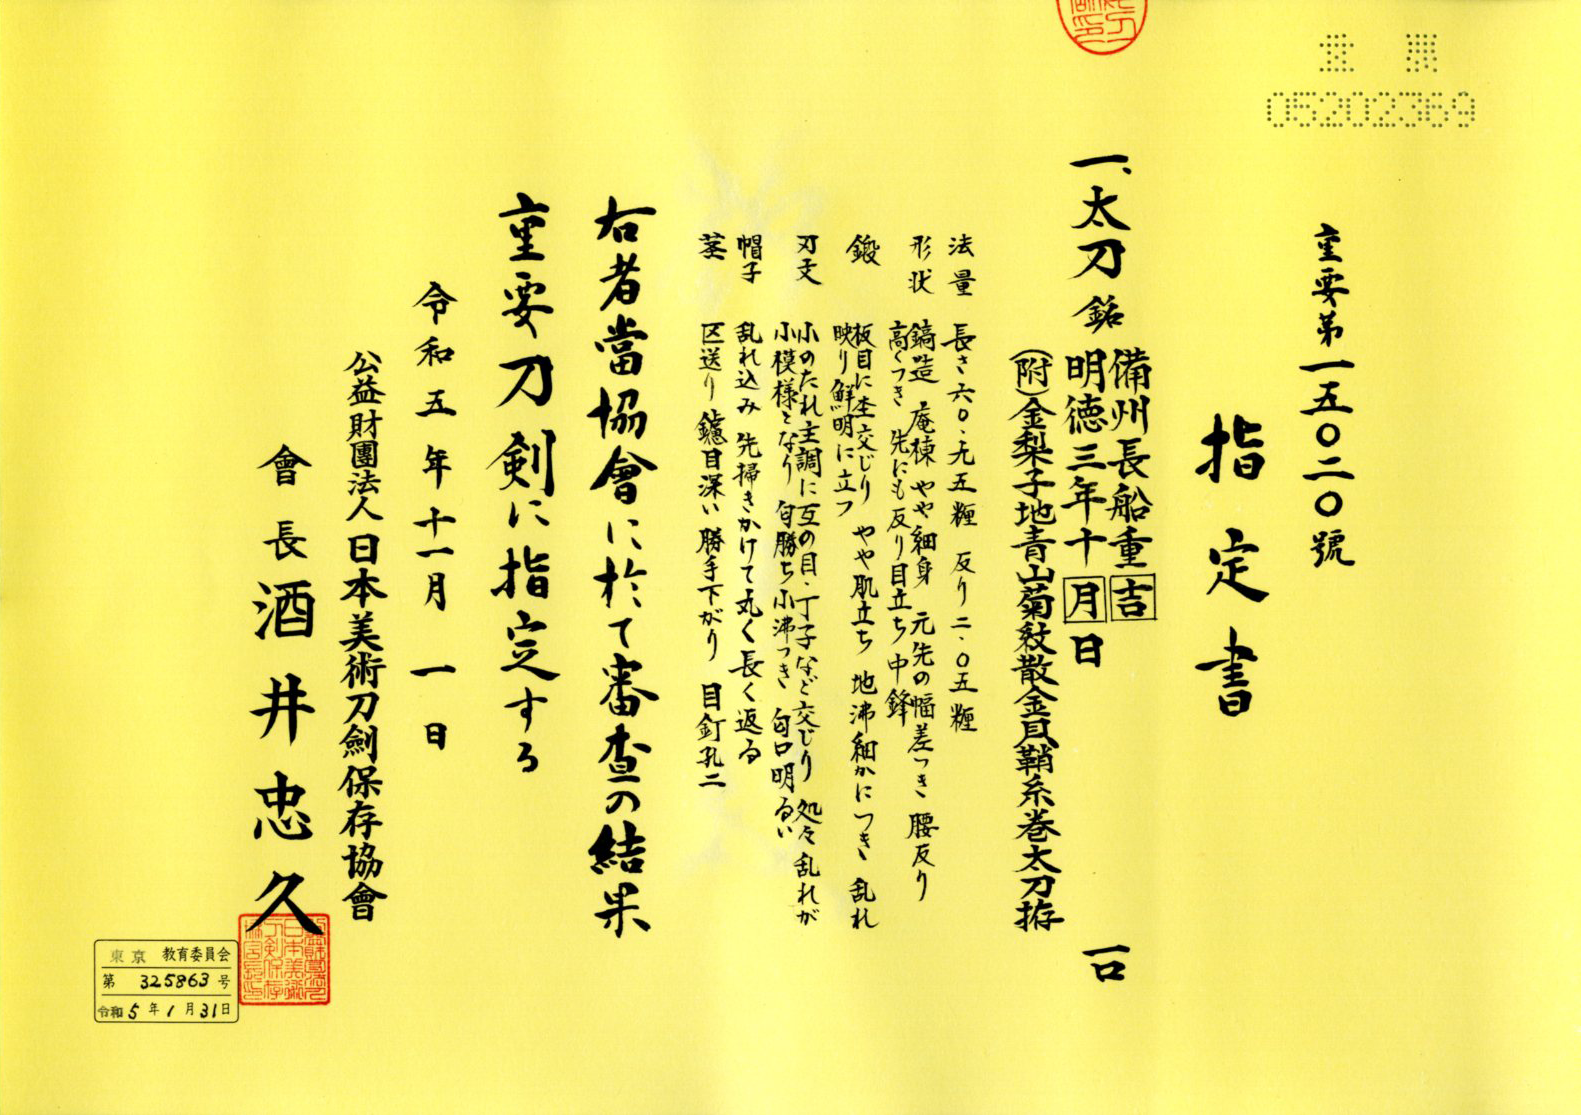 05202369
重要第一五〇二〇號
指定書
一、太刀 銘 備州長船重吉
明徳三年十月日
一口
(附)金梨子地青山菊紋散金貝鞘糸巻太刀拵
法量 長さ六〇・九五糎 反り二・〇五糎
形状 鎬造 庵棟 やや細身 元先の幅差つき 腰反り
高くつき 先にも反り目立ち中鋒
鍛 板目に杢交じり やや肌立ち 地沸細かにつき 乱れ
映り鮮明に立つ
刃文 小のたれ主調に互の目・丁子など交じり 処々乱れが
小模様となり 匂勝ち小沸つき 匂口明るい
帽子 乱れ込み 先掃きかけて丸く長く返る
茎 区送り 鑢目深い勝手下がり 目釘孔二
右者當協會に於て審査の結果
重要刀剣に指定する
令和五年十一月一日
公益財團法人日本美術刀劍保存協會
會長 酒井忠久
東京 教育委員会
第 325863 号
令和 5 年 1 月 31 日